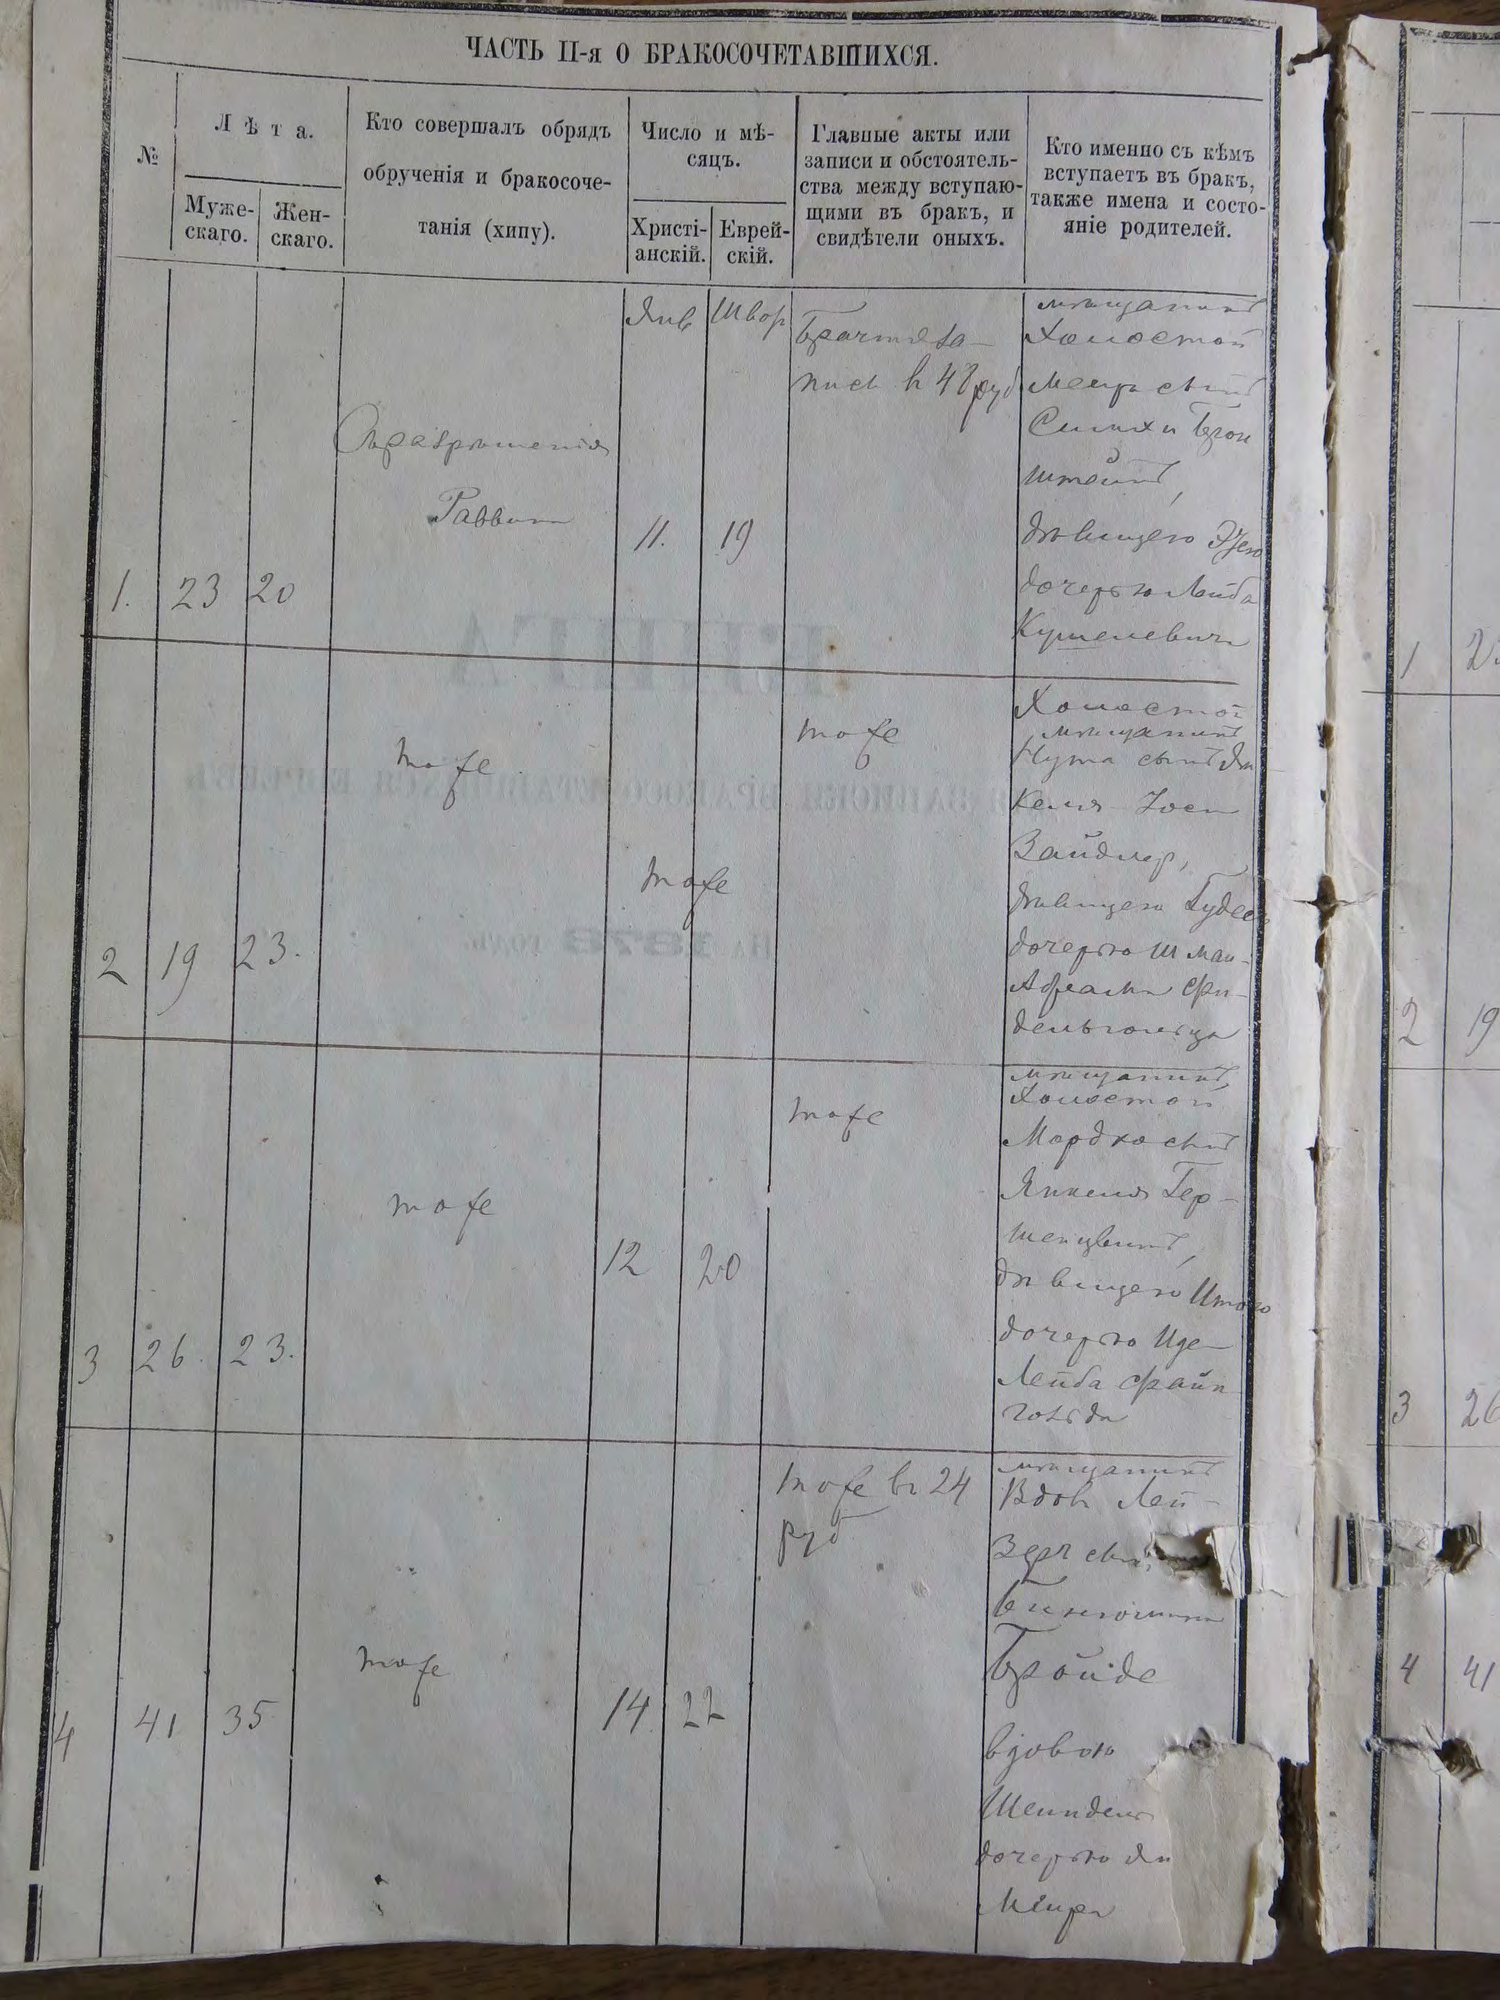 ЧАСТЬ II-я О БРАКОСОЧЕТАВШИХСЯ.
№
Лѣта.
Муже-
скаго.
Жен-
скаго.
Кто совершалъ обрядъ
обрученія и бракосоче-
танія (хипу).
Число и мѣ-
сяцъ.
Христі-
анскій.
Еврей-
скій.
Главные акты или
записи и обстоятель-
ства между вступаю-
щими въ бракъ, и
свидѣтели оныхъ.
Кто именно съ кѣмъ
вступаетъ въ бракъ,
также имена и состо-
яніе родителей.
1.
23
20
Съ разрѣшенія
Раввина
Янв
11.
Швор
19
Брачная за-
пись в 48 руб
мѣщанинъ
Холостой
сынъ
Брон
штейнъ,
дѣвицею
дочерью Лейба
Кушелевича
2
19
23.
тоже
тоже
тоже
Холостой
мѣщанинъ
Нута сынъ Ян
келя Іосъ
Зайдлер,
дѣвицею
дочерью Шмаи-
Абрама Фи-
дельгольца
3
26.
23.
тоже
12
20
тоже
мѣщанинъ,
Холостой
Мордко сынъ
Янкеля Гер-
шенцвинъ,
дѣвицею Итою
дочерью Иде-
Лейба Файн
гольда
4
41
35
тоже
14.
22
тоже въ 24
руб
мѣщанинъ
Вдов. Лей-
зеръ сынъ
Биньомина
Бройде
вдовою
Шейндель
дочерью Ян
Меира
1
2
19
3
26
4
41